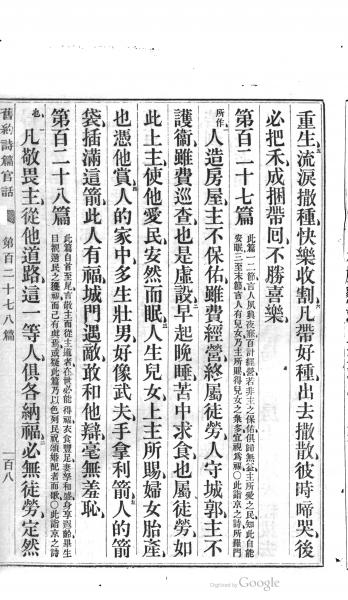 重生流淚撒種快樂收割凡帶好種出去撒散彼時啼哭後
必把禾成捆帶囘不勝喜樂
第百二十七篇 此篇一二節言人夙興夜寐百計經營若非主之保佑俱歸無益主所愛之民知此自能
安眠三至末節言人有兒女乃主所賜得兒女之衆多宜視爲福○此諧京之詩所羅門
所作 人造房屋主不保佑雖費經營終屬徒勞人守城郭主不
護衞雖費巡查也是虛設早起晚睡苦中求食也屬徒勞如
此上主使他愛民安然而眠人生兒女上主所賜婦女胎產
也憑他賞人的家中多生壯男好像武夫手拿利箭人的箭
袋插滿這箭此人有福城門遇敵敢和他辯毫無羞恥
第百二十八篇 此篇自首至尾言敬主而從主道者在世必能得福衣食豐足妻孥和盛身享遐齡畢生
目覩選民之獲福而己有與焉或疑此篇乃以色列民祝頌婚配者而歌○此諧京之詩
也 凡敬畏主從他道路這一等人俱各納福必無徒勞定然
舊約詩篇官話 第百二十七八篇 一百八
Digitized by Google